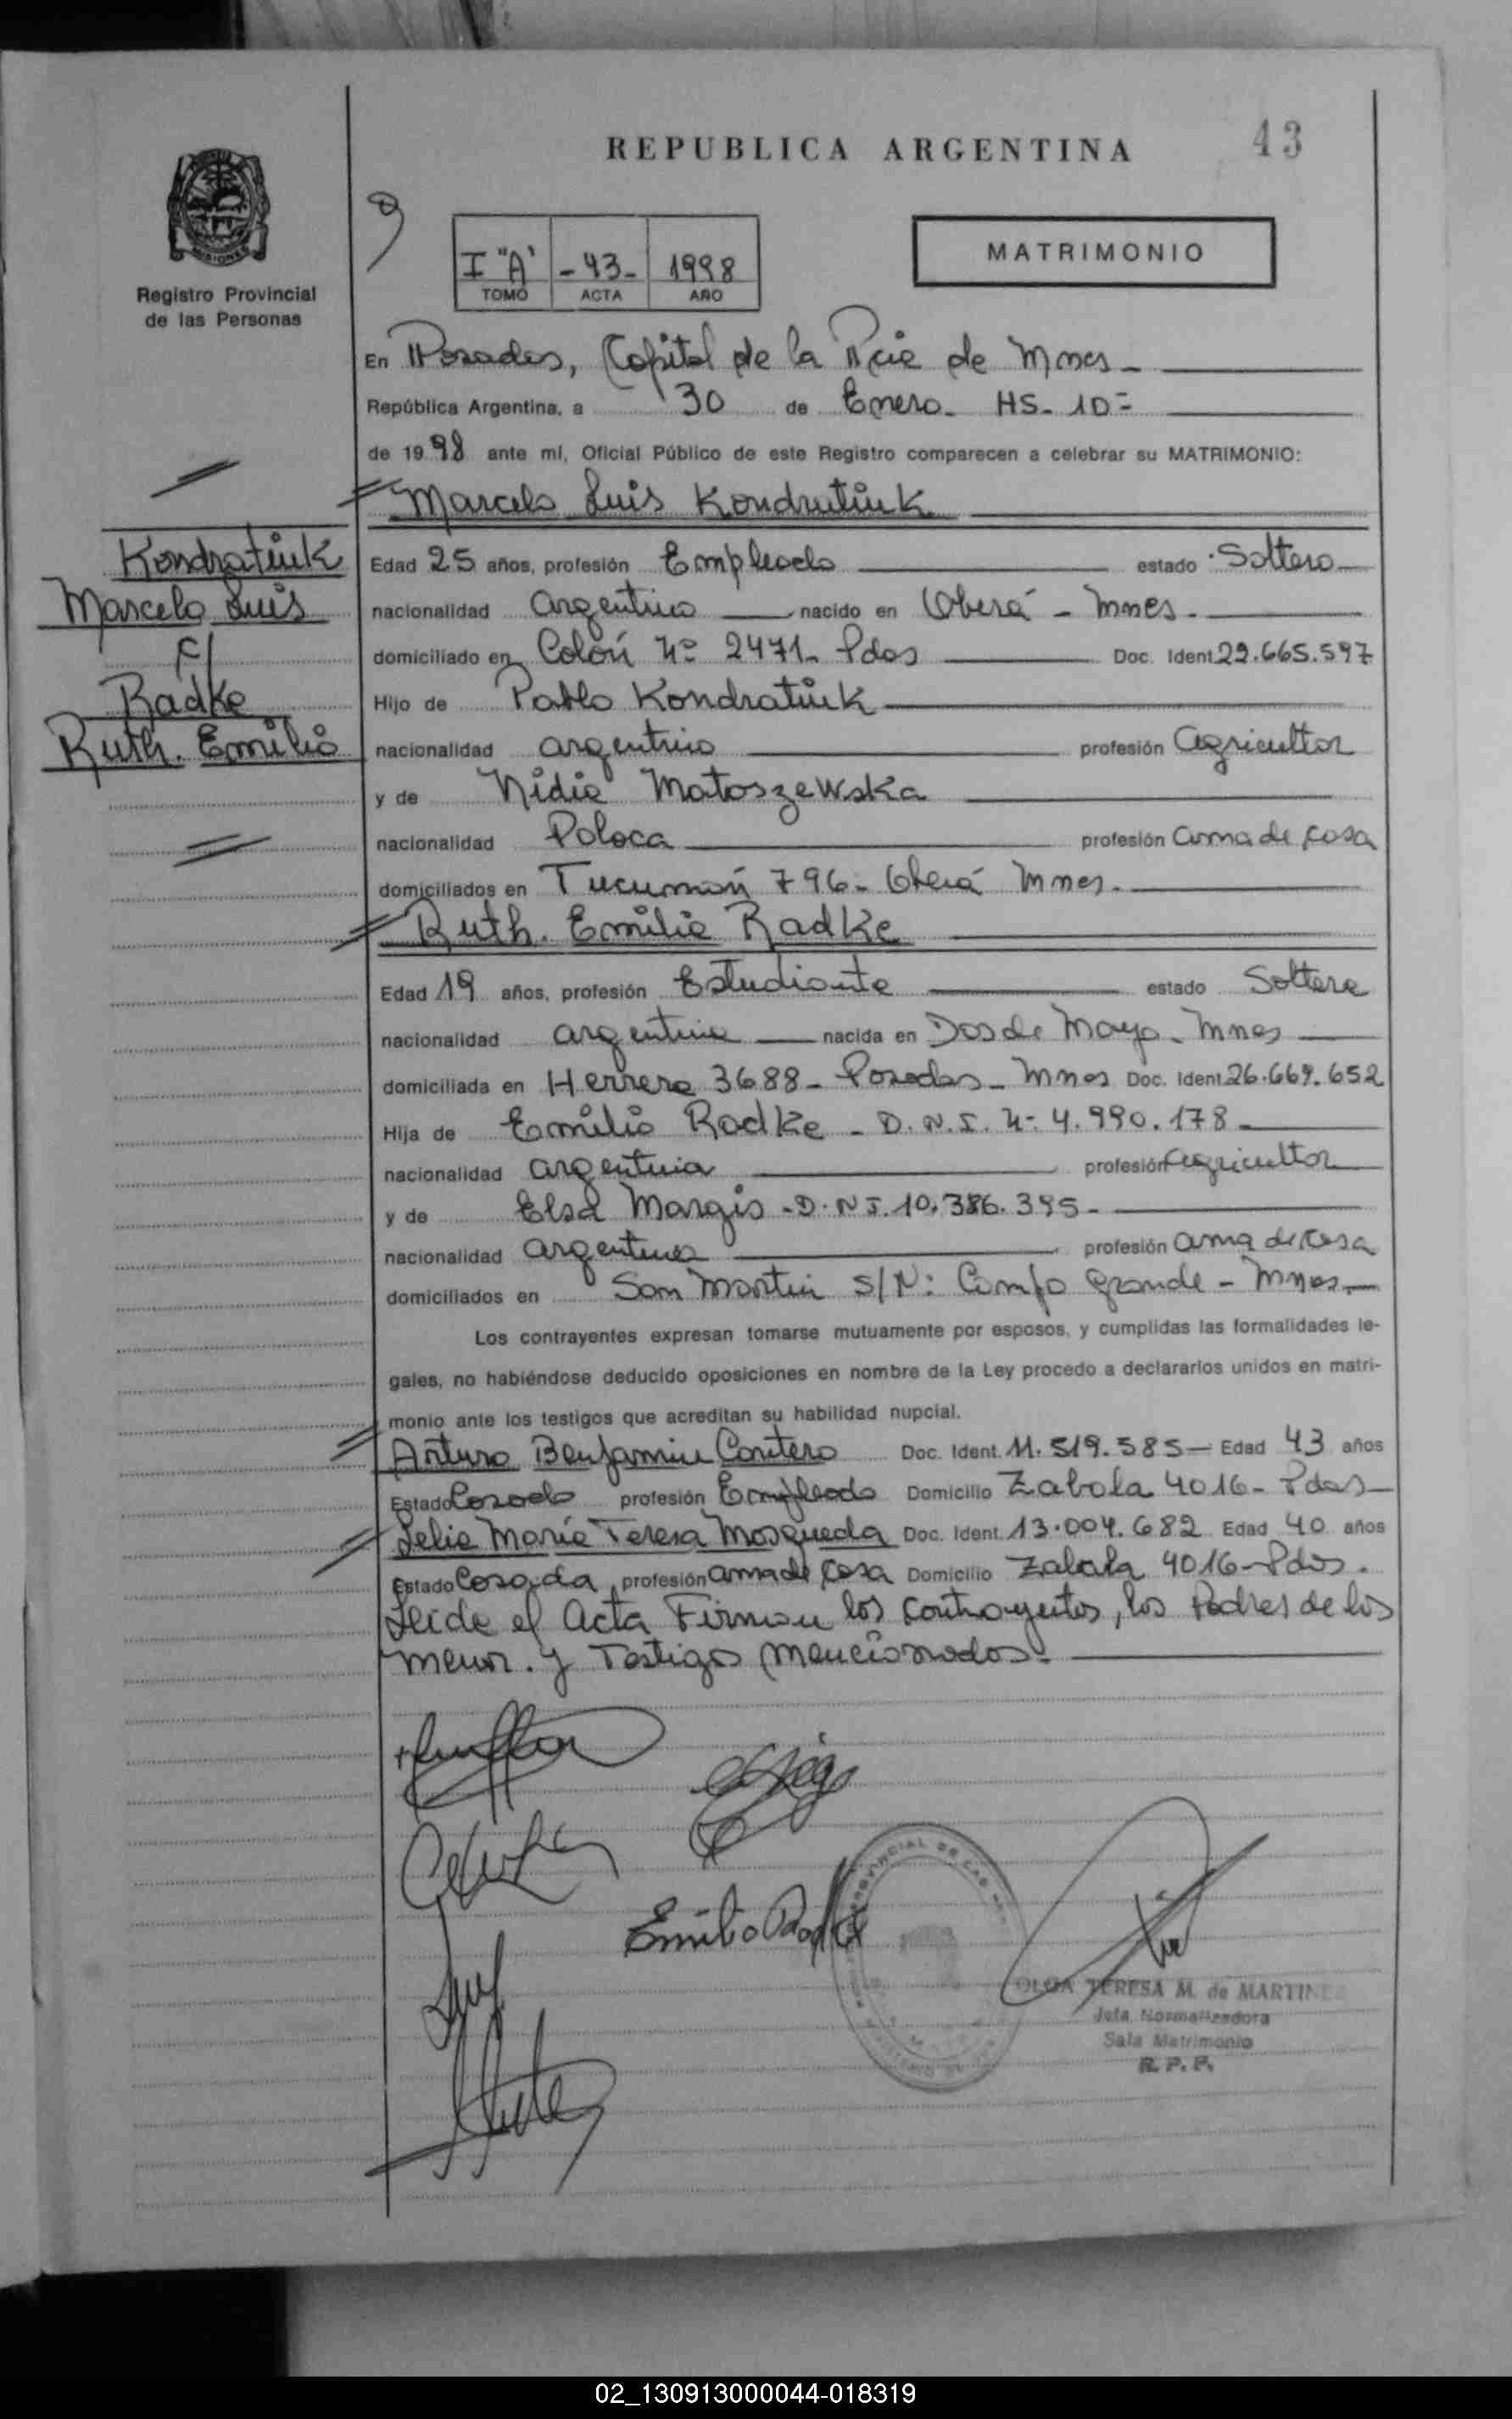 REPUBLICA ARGENTINA
43
MISIONES
Registro Provincial
de las Personas
I "A" -43- 1998
TOMO ACTA AÑO
MATRIMONIO
En Posadas, Capital de la Pcia de Mnes -
República Argentina, a 30 de Enero - HS - 10 =
de 1998 ante mí, Oficial Público de este Registro comparecen a celebrar su MATRIMONIO:
Marcelo Luis Kondratiuk
Kondratiuk
Marcelo Luis
c/
Radke
Ruth. Emilia
Edad 25 años, profesión Empleado estado Soltero
nacionalidad argentino nacido en Oberá - Mnes -
domiciliado en Colón Nº 2471 - Pdas Doc. Ident 22.665.597
Hijo de Pablo Kondratiuk
nacionalidad argentino profesión agricultor
y de Nidia Matoszewska
nacionalidad Polaca profesión ama de casa
domiciliados en Tucumán 796 - Oberá Mnes.
Ruth. Emilia Radke
Edad 19 años, profesión Estudiante estado Soltera
nacionalidad argentina nacida en Dos de Mayo - Mnes
domiciliada en Herrera 3688 - Posadas - Mnes Doc. Ident 26.669.652
Hija de Emilio Radke - D.N.I. Nº 4.990.178 -
nacionalidad argentina profesión agricultor
y de Elsa Margis - D.N.I. 10.386.395 -
nacionalidad argentina profesión ama de casa
domiciliados en San Martin S/N: Campo Grande - Mnes -
Los contrayentes expresan tomarse mutuamente por esposos, y cumplidas las formalidades le-
gales, no habiéndose deducido oposiciones en nombre de la Ley procedo a declararlos unidos en matri-
monio ante los testigos que acreditan su habilidad nupcial.
Arturo Benjamin Contero Doc. Ident. 11.519.585 - Edad 43 años
Estado Casado profesión Empleado Domicilio Zabala 4016 - Pdas -
Lelia Maria Teresa Mosqueda Doc. Ident. 13.004.682 Edad 40 años
Estado Casada, profesión ama de casa Domicilio Zabala 4016 - Pdas.
Leida el acta Firman los contrayentes, los Padres de los
menor. y Testigos mencionados.
Emilio Radke
OLGA TERESA M. de MARTINEZ
Jefa Normalizadora
Sala Matrimonio
R. P. P.
02_130913000044-018319